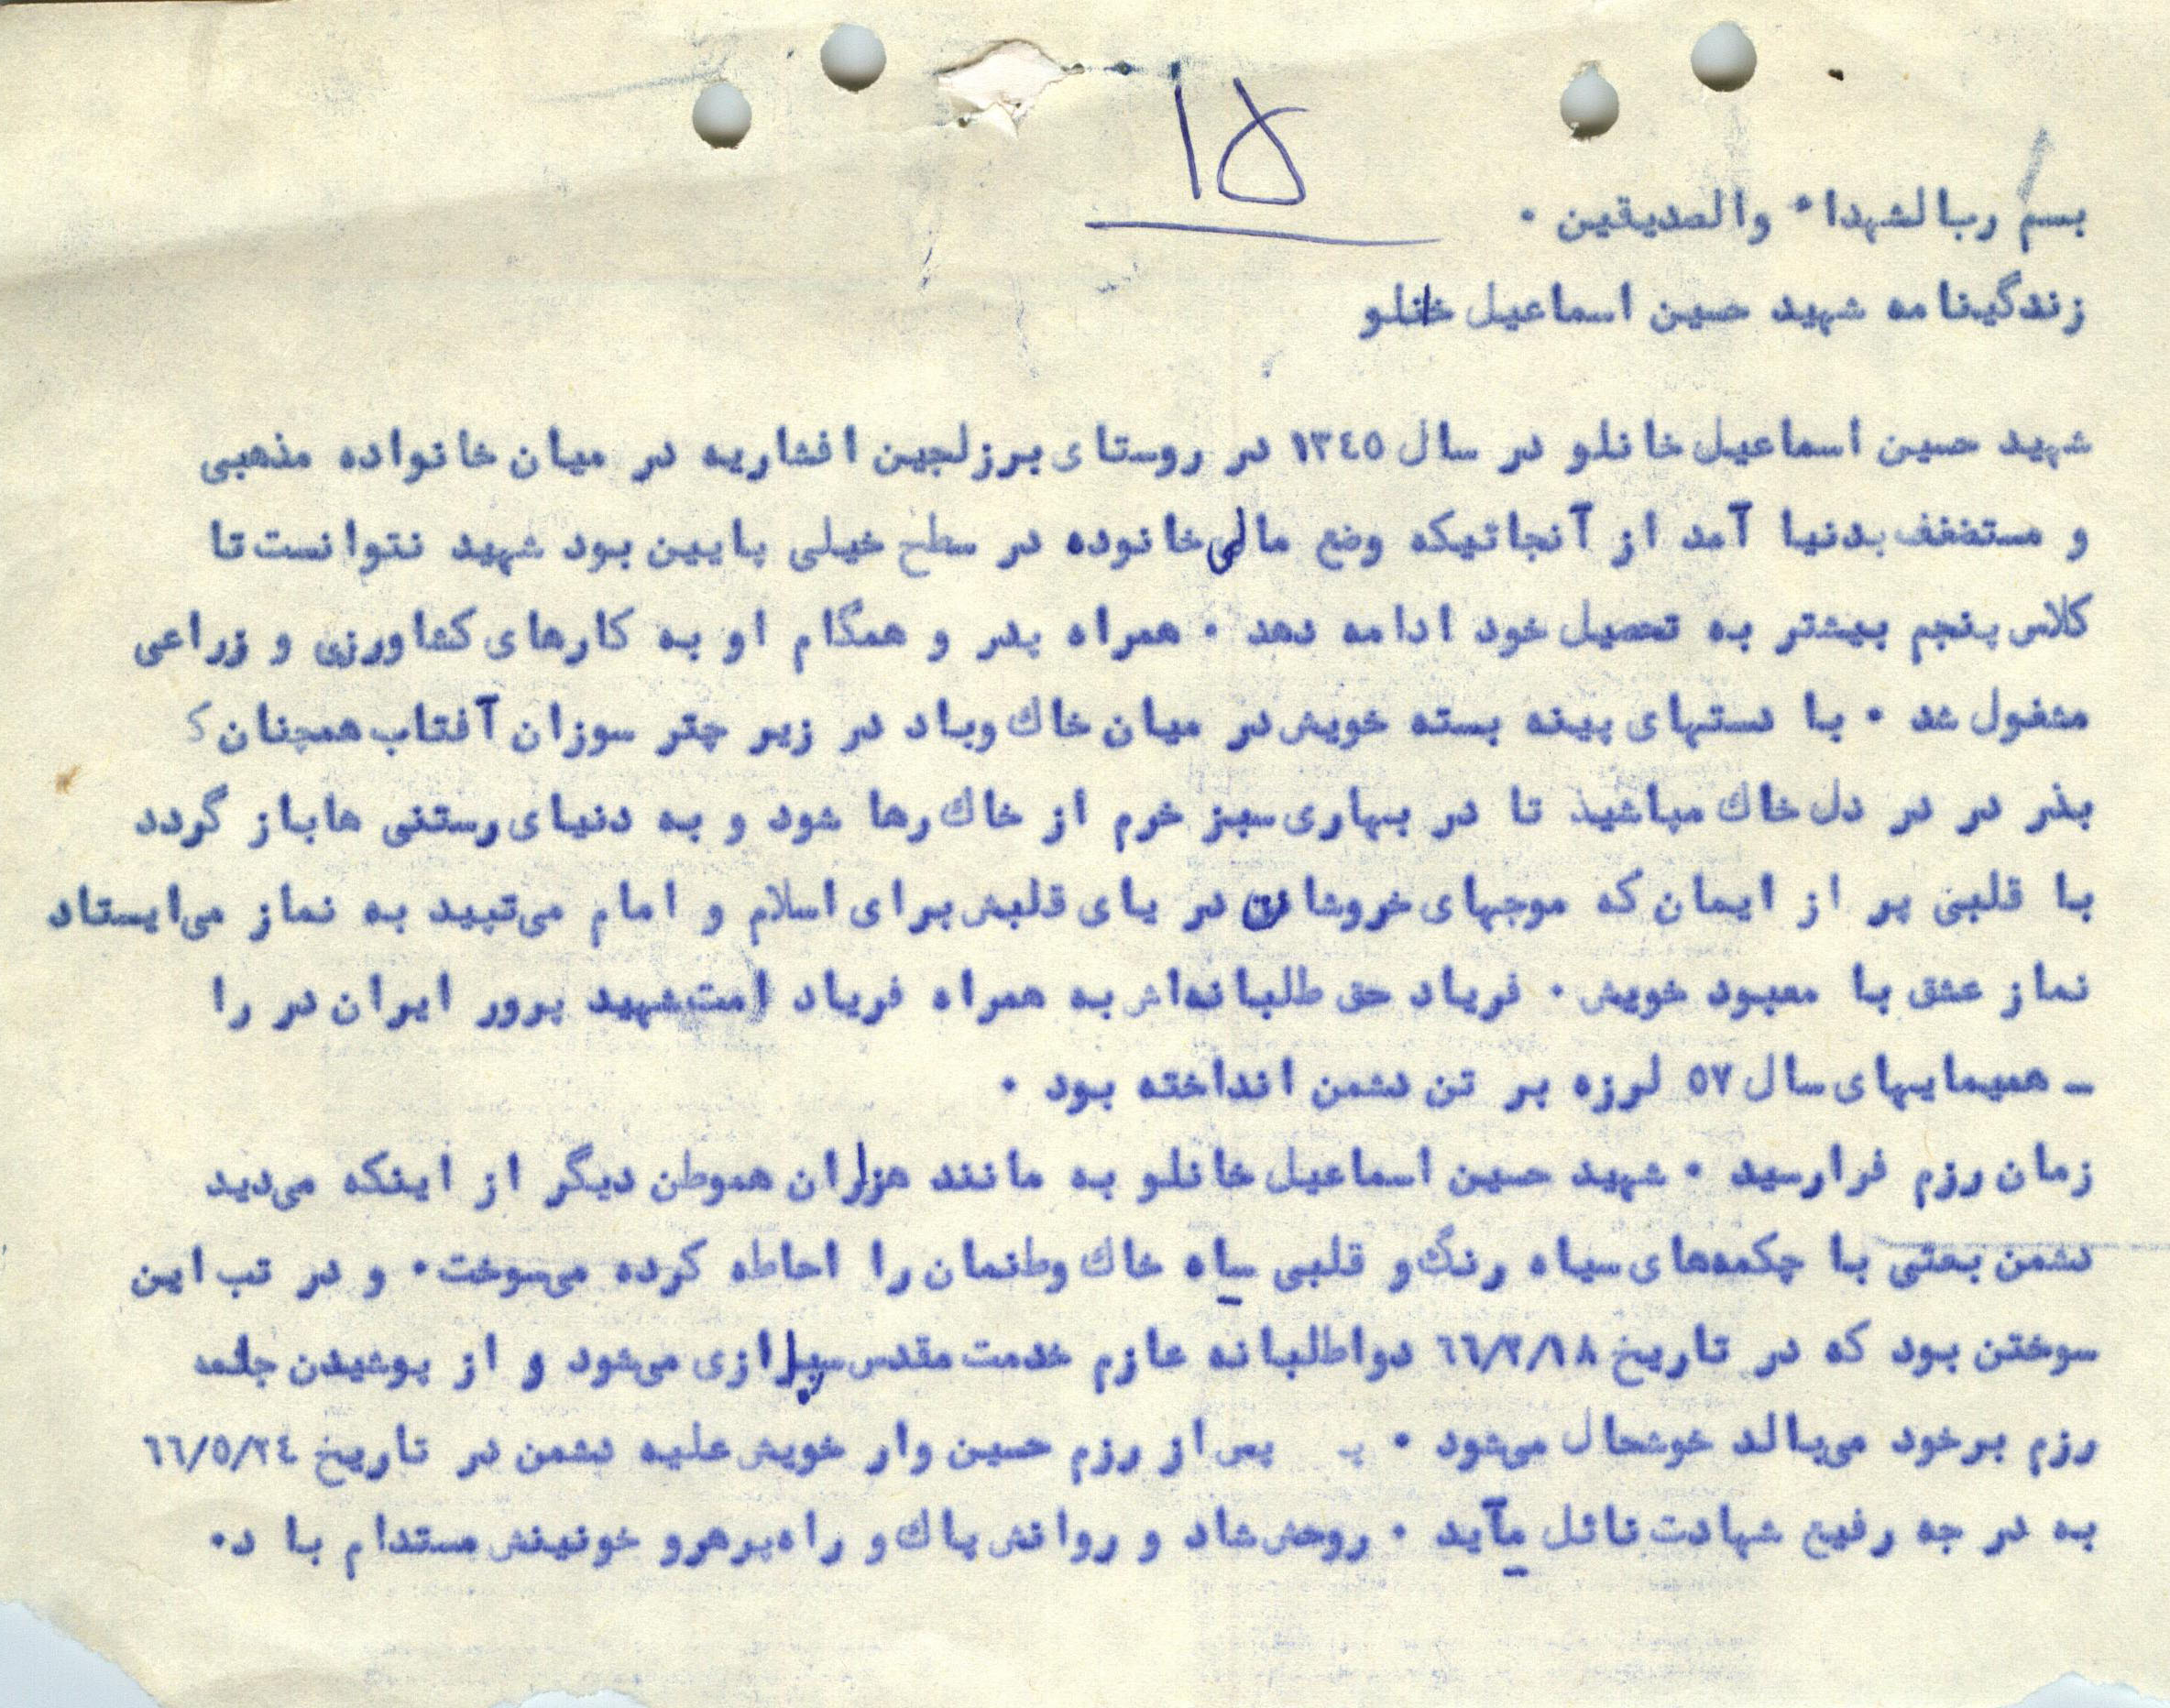 ۱۵
بسم ربالشهداء والصدیقین .
زندگینامه شهید حسین اسماعیل خانلو
شهید حسین اسماعیل خانلو در سال ۱۳٤٥ در روستای برزلجین افشاریه در میان خانواده مذهبی
و مستضعف بدنیا آمد از آنجائیکه وضع مالی خانوده در سطح خیلی پایین بود شهید نتوانست تا
کلاس پنجم بیشتر به تحصیل خود ادامه دهد . همراه پدر و همگام او به کارهای کشاورزی و زراعی
مشغول شد . با دستهای پینه بسته خویش در میان خاك وباد در زیر چتر سوزان آفتاب همچنان ک
بذر در در دل خاك میپاشید تا در بهاری سبز خرم از خاك رها شود و به دنیای رستنی ها باز گردد
با قلبی پر از ایمان که موجهای خروشان در یای قلبش برای اسلام و امام می‌تپید به نماز می‌ایستاد
نماز عشق با معبود خویش . فریاد حق طلبانه‌اش به همراه فریاد امت شهید پرور ایران در را
ـ همیمایبهای سال ٥٧ لرزه بر تن دشمن انداخته بود .
زمان رزم فرارسید . شهید حسین اسماعیل خانلو به مانند هزاران هموطن دیگر از اینکه می‌دید
دشمن بعثی با چکمه‌های سیاه رنگ و قلبی سیاه خاك وطنمان را احاطه کرده می‌سوخت . و در تب این
سوختن بود که در تاریخ ٦٦/٢/١٨ دواطلبانه عازم خدمت مقدس سربازی می‌شود و از پوشیدن جامه
رزم برخود می‌بالد خوشحال می‌شود . پس از رزم حسین وار خویش علیه دشمن در تاریخ ٦٦/٥/٢٤
به در جه رفیع شهادت نائل میآید . روحش شاد و روانش پاك و راه پرهرو خونینش مستدام با د.